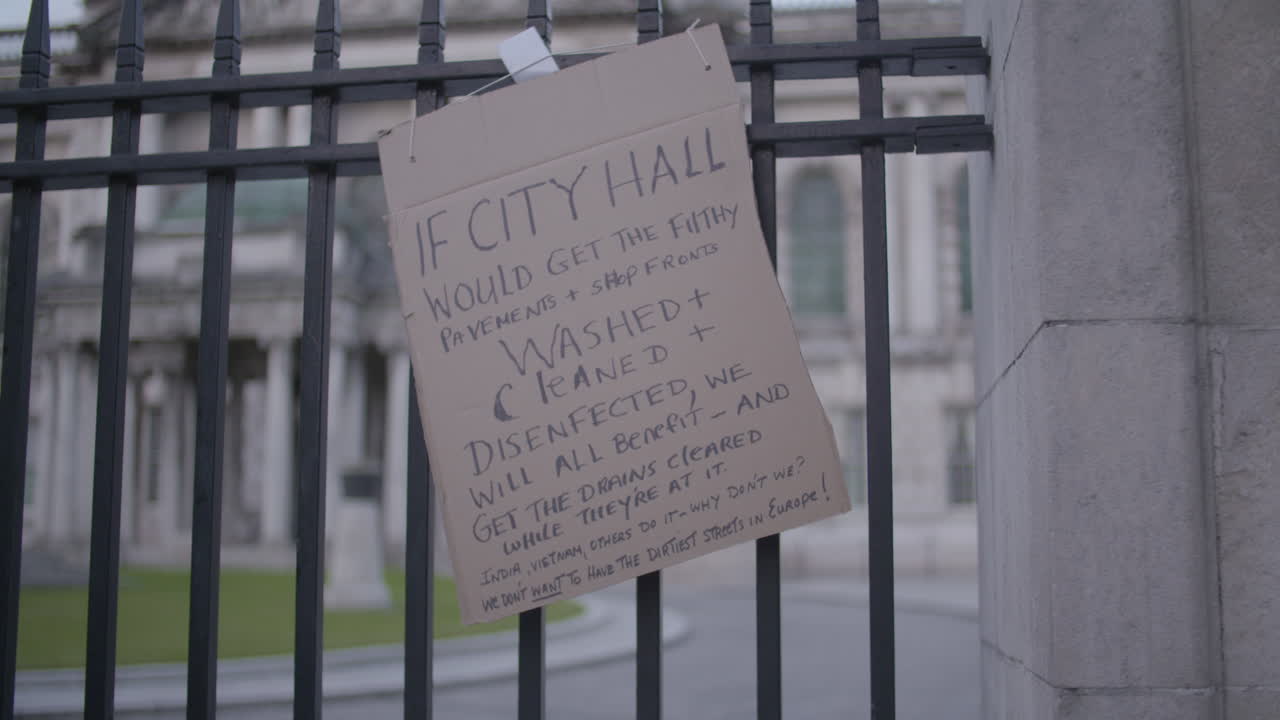 IF CITY HALL
WOULD GET THE FILTHY
PAVEMENTS + SHOP FRONTS
WASHED +
CLEANED +
DISENFECTED, WE
WILL ALL BENEFIT - AND
GET THE DRAINS CLEARED
WHILE THEY'RE AT IT.
INDIA, VIETNAM, OTHERS DO IT - WHY DON'T WE?
WE DON'T WANT TO HAVE THE DIRTIEST STREETS IN EUROPE!